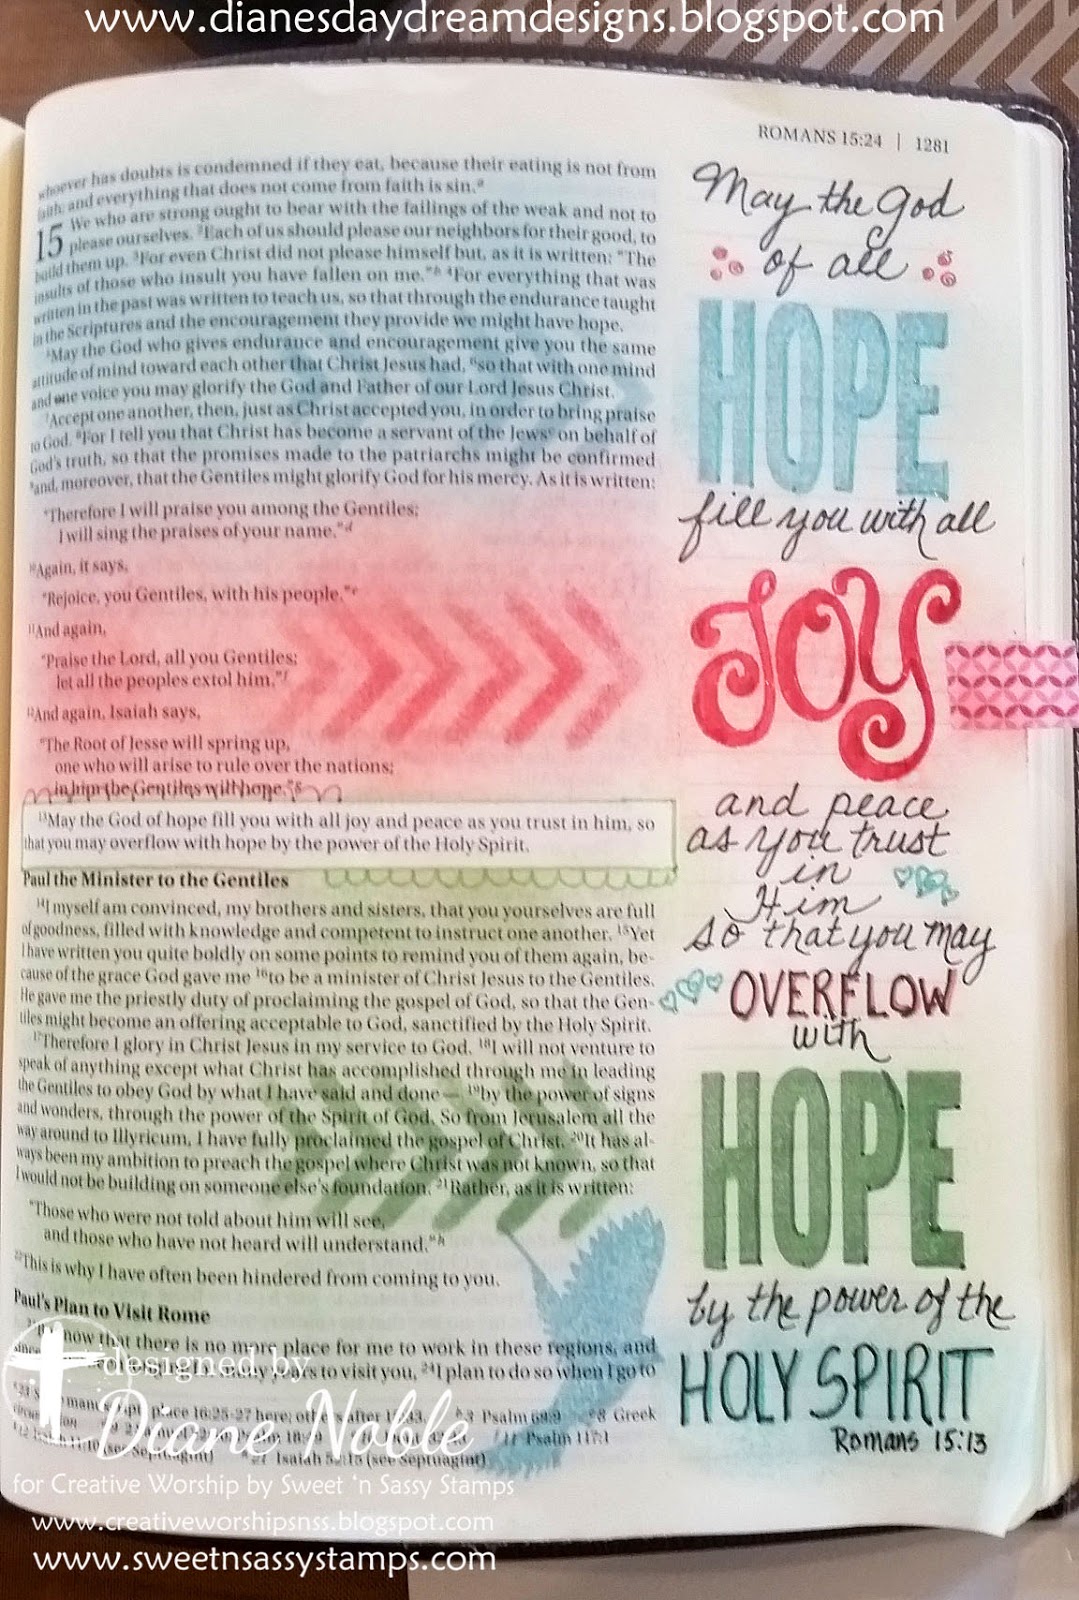 www.dianesdaydreamdesigns.blogspot.com
ROMANS 15:24 | 1281
whoever has doubts is condemned if they eat, because their eating is not from
faith; and everything that does not come from faith is sin.ᵃ
15 We who are strong ought to bear with the failings of the weak and not to
please ourselves. ²Each of us should please our neighbors for their good, to
build them up. ³For even Christ did not please himself but, as it is written: "The
insults of those who insult you have fallen on me."ᵇ ⁴For everything that was
written in the past was written to teach us, so that through the endurance taught
in the Scriptures and the encouragement they provide we might have hope.
⁵May the God who gives endurance and encouragement give you the same
attitude of mind toward each other that Christ Jesus had, ⁶so that with one mind
and one voice you may glorify the God and Father of our Lord Jesus Christ.
⁷Accept one another, then, just as Christ accepted you, in order to bring praise
to God. ⁸For I tell you that Christ has become a servant of the Jewsᶜ on behalf of
God's truth, so that the promises made to the patriarchs might be confirmed
⁹and, moreover, that the Gentiles might glorify God for his mercy. As it is written:
"Therefore I will praise you among the Gentiles;
I will sing the praises of your name."ᵈ
¹⁰Again, it says,
"Rejoice, you Gentiles, with his people."ᵉ
¹¹And again,
"Praise the Lord, all you Gentiles;
let all the peoples extol him."ᶠ
¹²And again, Isaiah says,
"The Root of Jesse will spring up,
one who will arise to rule over the nations;
in him the Gentiles will hope."ᵍ
¹³May the God of hope fill you with all joy and peace as you trust in him, so
that you may overflow with hope by the power of the Holy Spirit.
Paul the Minister to the Gentiles
¹⁴I myself am convinced, my brothers and sisters, that you yourselves are full
of goodness, filled with knowledge and competent to instruct one another. ¹⁵Yet
I have written you quite boldly on some points to remind you of them again, be-
cause of the grace God gave me ¹⁶to be a minister of Christ Jesus to the Gentiles.
He gave me the priestly duty of proclaiming the gospel of God, so that the Gen-
tiles might become an offering acceptable to God, sanctified by the Holy Spirit.
¹⁷Therefore I glory in Christ Jesus in my service to God. ¹⁸I will not venture to
speak of anything except what Christ has accomplished through me in leading
the Gentiles to obey God by what I have said and done — ¹⁹by the power of signs
and wonders, through the power of the Spirit of God. So from Jerusalem all the
way around to Illyricum, I have fully proclaimed the gospel of Christ. ²⁰It has al-
ways been my ambition to preach the gospel where Christ was not known, so that
I would not be building on someone else's foundation. ²¹Rather, as it is written:
"Those who were not told about him will see,
and those who have not heard will understand."ʰ
²²This is why I have often been hindered from coming to you.
Paul's Plan to Visit Rome
now that there is no more place for me to work in these regions, and
years to visit you, ²⁴I plan to do so when I go to
place 16:25-27 here; others after Psalm 69:9 8 Greek
11 Psalm 117:1
(see Septuagint) 21 Isaiah 52:15 (see Septuagint)
May the God
of all
HOPE
fill you with all
JOY
and peace
as you trust
in
Him
so that you may
OVERFLOW
with
HOPE
by the power of the
HOLY SPIRIT
Romans 15:13
designed by
Diane Noble
for Creative Worship by Sweet 'n Sassy Stamps
www.creativeworshipsnss.blogspot.com
www.sweetnsassystamps.com